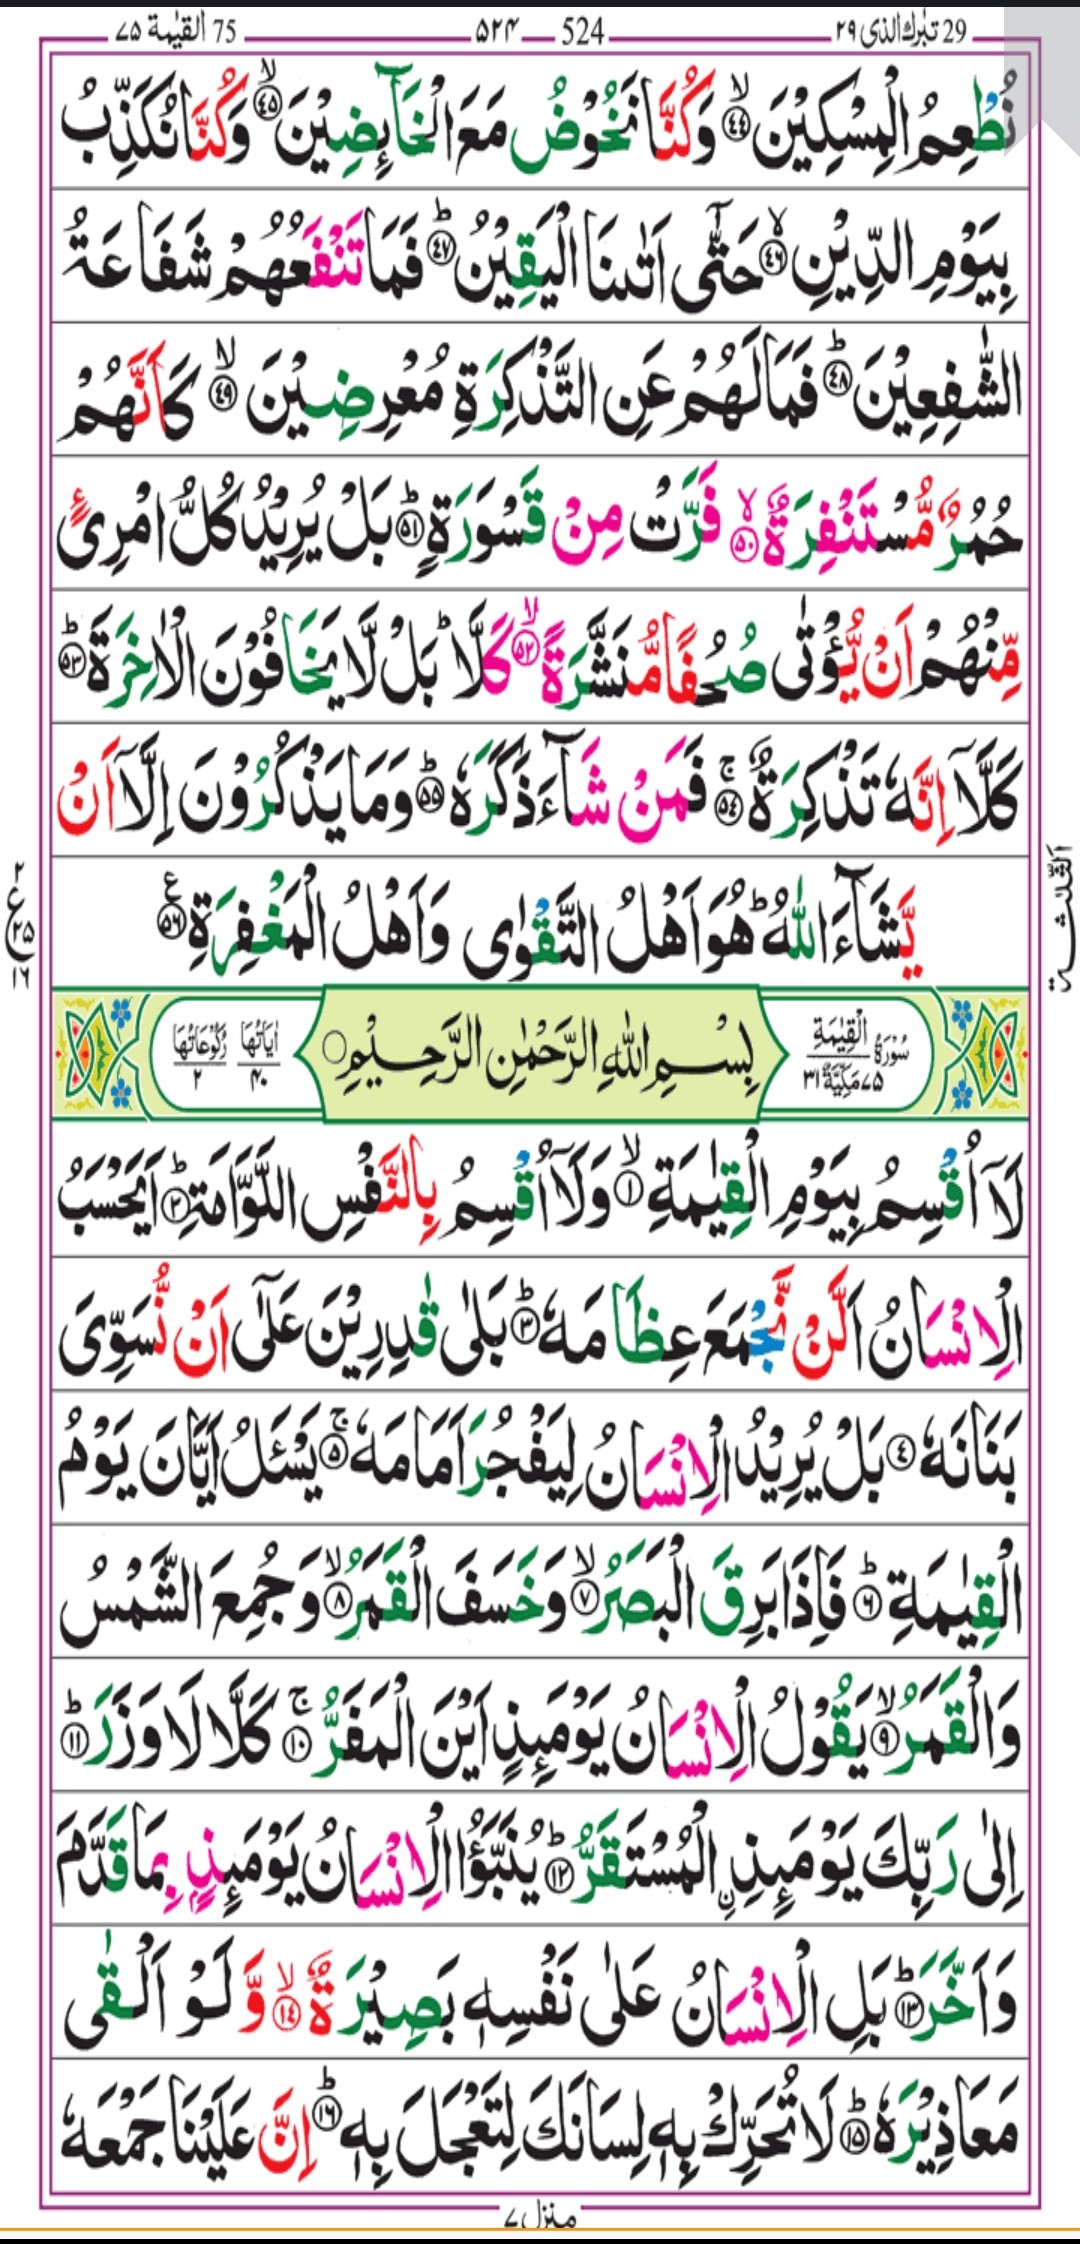 29 تبٰرك الذی ٢٩ 524 ۵۲۴ 75 القيٰمة ٧۵
نُطْعِمُ الْمِسْكِيْنَ ۙ﴿۴۴﴾ وَكُنَّا نَخُوْضُ مَعَ الْخَآىِٕضِيْنَ ۙ﴿۴۵﴾ وَكُنَّا نُكَذِّبُ
بِيَوْمِ الدِّيْنِ ۙ﴿۴۶﴾ حَتّٰۤى اَتٰىنَا الْيَقِيْنُ ؕ﴿۴۷﴾ فَمَا تَنْفَعُهُمْ شَفَاعَةُ
الشّٰفِعِيْنَ ؕ﴿۴۸﴾ فَمَا لَهُمْ عَنِ التَّذْكِرَةِ مُعْرِضِيْنَ ۙ﴿۴۹﴾ كَاَنَّهُمْ
حُمُرٌ مُّسْتَنْفِرَةٌ ۙ﴿۵۰﴾ فَرَّتْ مِنْ قَسْوَرَةٍ ؕ﴿۵۱﴾ بَلْ يُرِيْدُ كُلُّ امْرِئٍ
مِّنْهُمْ اَنْ يُّؤْتٰى صُحُفًا مُّنَشَّرَةً ۙ﴿۵۲﴾ كَلَّا ؕ بَلْ لَّا يَخَافُوْنَ الْاٰخِرَةَ ؕ﴿۵۳﴾
كَلَّاۤ اِنَّهٗ تَذْكِرَةٌ ۚ﴿۵۴﴾ فَمَنْ شَآءَ ذَكَرَهٗ ؕ﴿۵۵﴾ وَمَا يَذْكُرُوْنَ اِلَّاۤ اَنْ
يَّشَآءَ اللّٰهُ ؕ هُوَ اَهْلُ التَّقْوٰى وَاَهْلُ الْمَغْفِرَةِ ۧ﴿۵۶﴾
الثلٰثة
٢ ع ٢۵ ١٦
سُوْرَةُ الْقِيٰمَةِ ٧۵ مَكِّيَّةٌ ٣١ بِسْمِ اللّٰهِ الرَّحْمٰنِ الرَّحِيْمِ ○ اٰيَاتُهَا ۴۰ رُكُوْعَاتُهَا ٢
لَاۤ اُقْسِمُ بِيَوْمِ الْقِيٰمَةِ ۙ﴿۱﴾ وَلَاۤ اُقْسِمُ بِالنَّفْسِ اللَّوَّامَةِ ؕ﴿۲﴾ اَيَحْسَبُ
الْاِنْسَانُ اَلَّنْ نَّجْمَعَ عِظَامَهٗ ؕ﴿۳﴾ بَلٰى قٰدِرِيْنَ عَلٰۤى اَنْ نُّسَوِّىَ
بَنَانَهٗ ﴿۴﴾ بَلْ يُرِيْدُ الْاِنْسَانُ لِيَفْجُرَ اَمَامَهٗ ۚ﴿۵﴾ يَسْـَٔلُ اَيَّانَ يَوْمُ
الْقِيٰمَةِ ؕ﴿۶﴾ فَاِذَا بَرِقَ الْبَصَرُ ۙ﴿۷﴾ وَخَسَفَ الْقَمَرُ ۙ﴿۸﴾ وَجُمِعَ الشَّمْسُ
وَالْقَمَرُ ۙ﴿۹﴾ يَقُوْلُ الْاِنْسَانُ يَوْمَىِٕذٍ اَيْنَ الْمَفَرُّ ۚ﴿۱۰﴾ كَلَّا لَا وَزَرَ ؕ﴿۱۱﴾
اِلٰى رَبِّكَ يَوْمَىِٕذِ ِۨالْمُسْتَقَرُّ ؕ﴿۱۲﴾ يُنَبَّؤُا الْاِنْسَانُ يَوْمَىِٕذٍۭ بِمَا قَدَّمَ
وَاَخَّرَ ؕ﴿۱۳﴾ بَلِ الْاِنْسَانُ عَلٰى نَفْسِهٖ بَصِيْرَةٌ ۙ﴿۱۴﴾ وَّلَوْ اَلْقٰى
مَعَاذِيْرَهٗ ؕ﴿۱۵﴾ لَا تُحَرِّكْ بِهٖ لِسَانَكَ لِتَعْجَلَ بِهٖ ؕ﴿۱۶﴾ اِنَّ عَلَيْنَا جَمْعَهٗ
منزل ٧